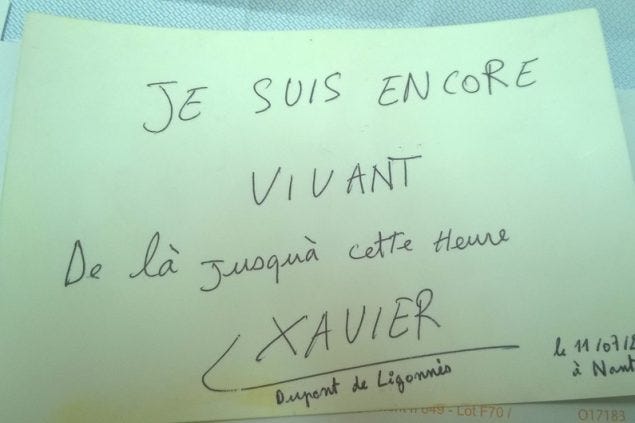 JE SUIS ENCORE
VIVANT
De là jusqu'à cette Heure
XAVIER
Dupont de Ligonnès
le 11/07/
à Nant
649 - Lot F70 / O17183